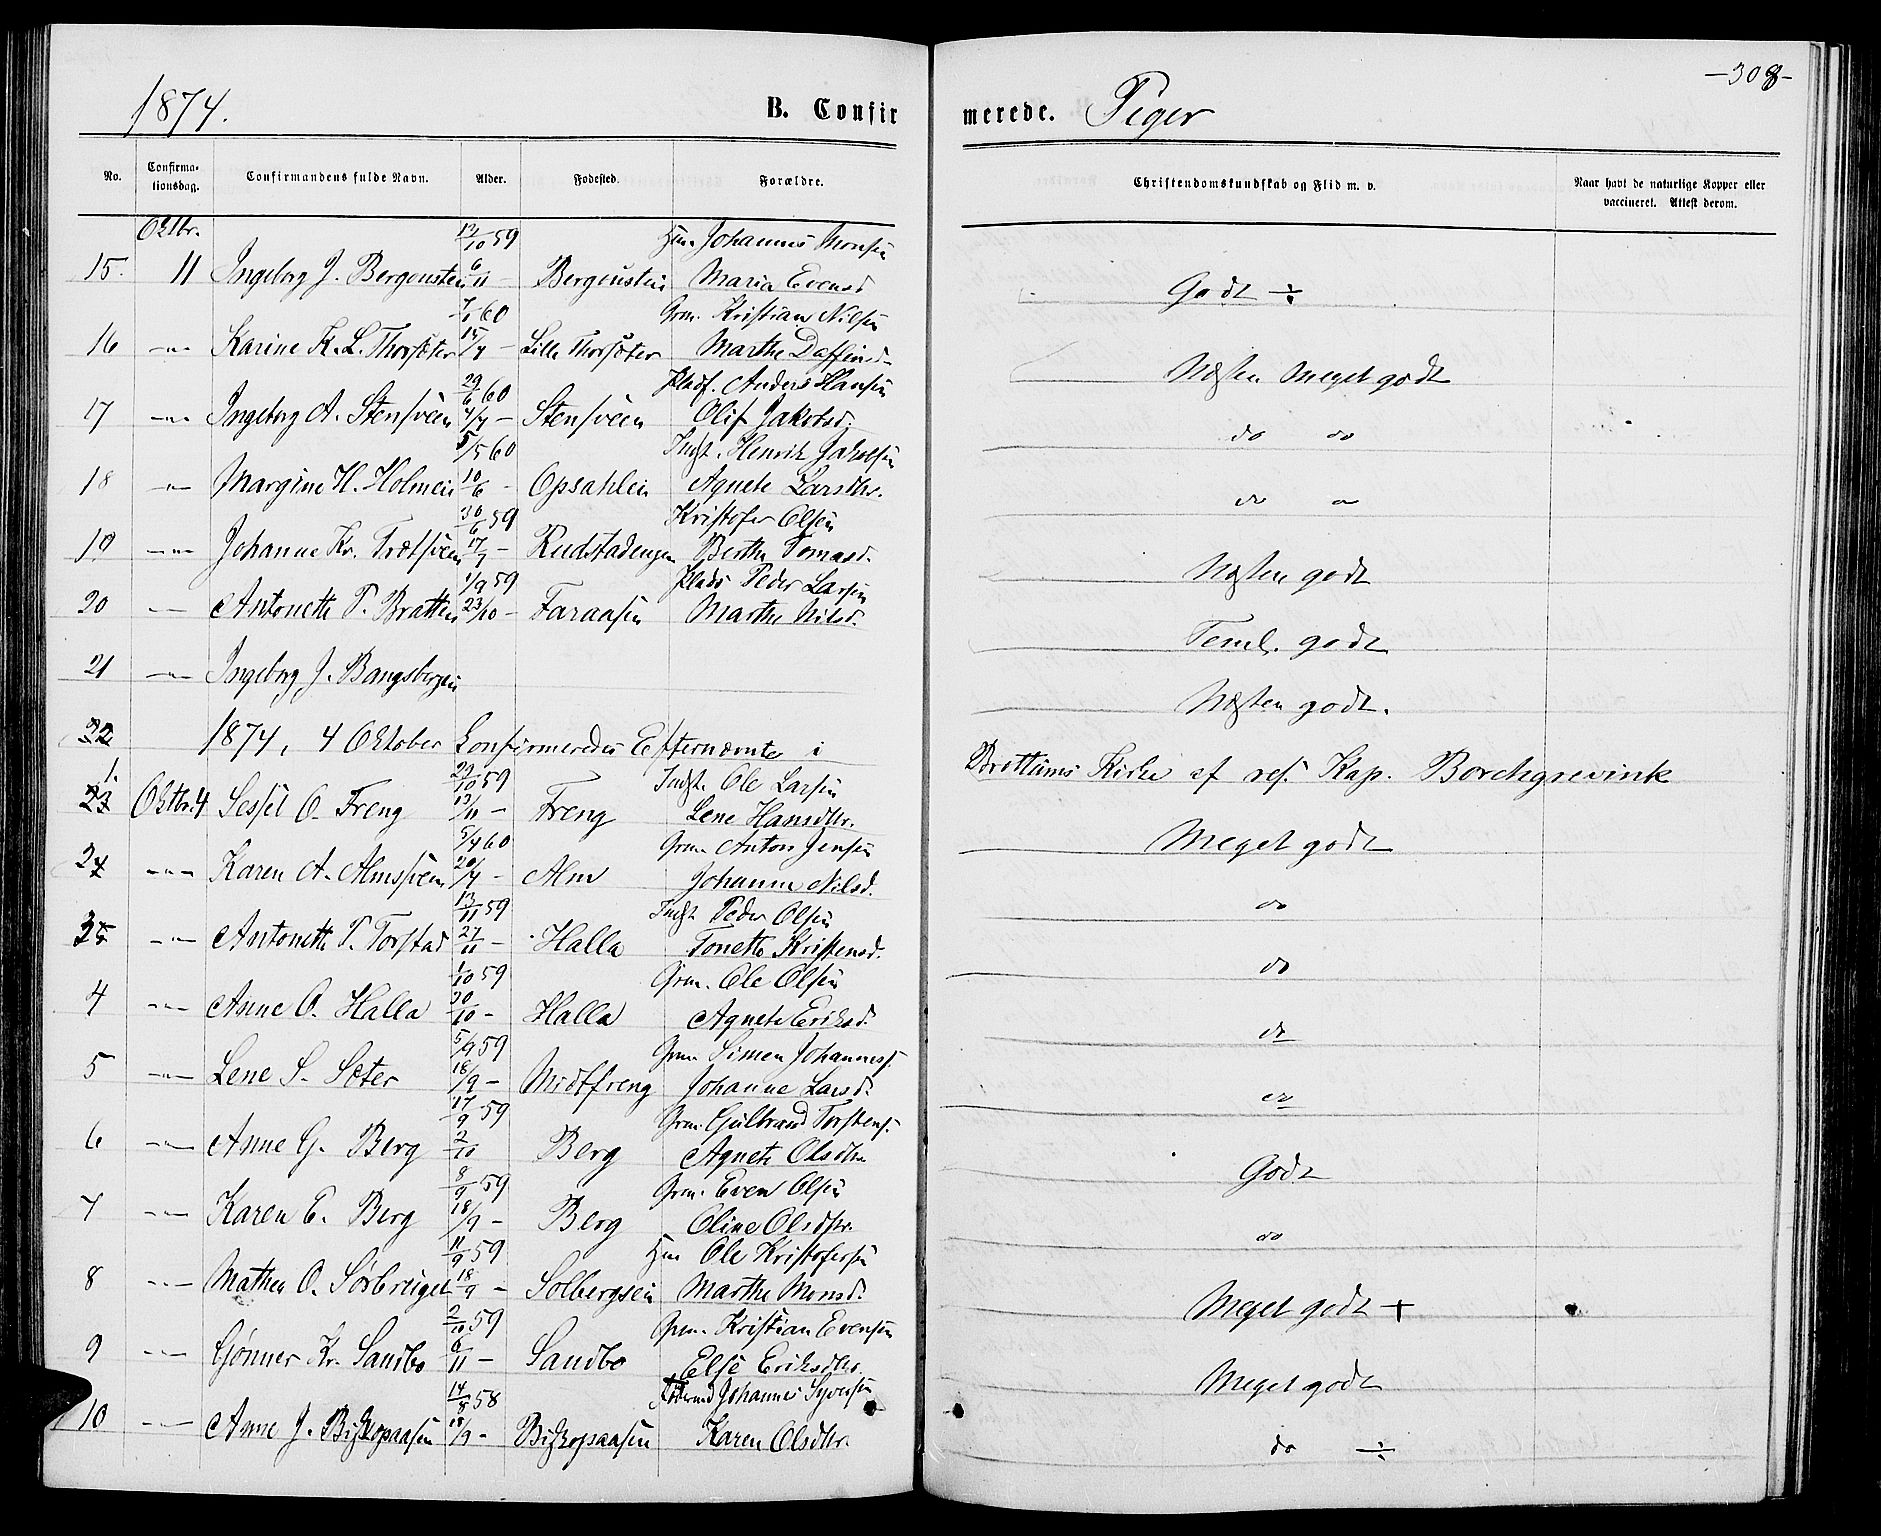 1874.
B. Confirmerede. Piger
-308-
No.
Confirmationsdag.
Confirmandens fulde Navn.
Alder.
Fodested.
Forældre.
Christendomskundskab og Flid m. v.
Naar havt de naturlige Kopper eller vaccineret. Attest derom.
Oktbr. 13/10 59 Hm. Johannes Monsen
15. 11 Ingeborg J. Bergensteen 6/11 - Bergensteen Maria Evensd Godt ÷
60 Grm. Kristian Nilsen
16 -"- Karine K. L. Thorsæter 15/7 - Lille Thorsæter Marthe Daffinsd. Næsten Meget godt
29/6 60 Pladf. Anders Hansen
17 -"- Ingeborg A. Stensveen 4/7 - Stensveen Olif Jakobsd. do do
5/5 60 Indst. Henrik Jakobsen
18 -"- Margine H. Holmen 10/6 - Opsahlen Agnete Larsdtr. do
30/6 59 Kristofer Olsen
19 -"- Johanne Kr. Trætsveen 17/7 - Rudstadengen Berthe Tomasd. Næsten godt
1/9 59 Plads Peder Larsen
20 -"- Antonette P. Bratten 23/10 - Faraasen Marthe Nilsd. Teml. godt
21 -"- Ingeborg J. Bangsbergen Næsten godt.
22 1874, 4 Oktober Konfirmeredes Efternævnte i Brøttums Kirke af res. Kap. Borchgrevink
29/10 59 Indst. Ole Larsen
1 23 Oktbr. 4 Sessel O. Freng 13/11 - Freng Lene Hansdtr. Meget godt
5/4 60 Grm. Anton Jensen
2 -"- Karen A. Almsveen 20/4 - Alm Johanne Nilsd. do
13/11 59 Indst. Peder Olsen
3 -"- Antonette P. Torstad 27/11 - Halla Tonette Kristensd. do
1/10 59 Grm. Ole Olsen
4 -"- Anne O. Halla 30/10 - Halla Agnete Eriksd. do
5/9 59 Grm. Simen Johanness.
5 -"- Lene S. Sæter 18/9 - Midtfreng Johanne Larsd. do
17/9 59 Grm. Gulbrand Torstens.
6 -"- Anne G. Berg 2/10 Berg Agnete Olsdtr Godt
8/9 59 Grm. Even Olsen
7 -"- Karen E. Berg 18/9 - Berg Oline Olsdtr. do
11/9 59 Hm Ole Kristofersen
8 -"- Mathea O. Sørbreigel 18/9 - Solbergseien Marthe Monsd. Meget godt +
2/10 59 Grm. Kristian Evensen
9 -"- Gønner Kr. Sandbo 6/11 - Sandbo Else Eriksdtr. Meget godt
14/8 58 Johannes Syversen
10 -"- Anne J. Biskopaasen 18/9 - Biskopaasen Karen Olsdtr. do ÷